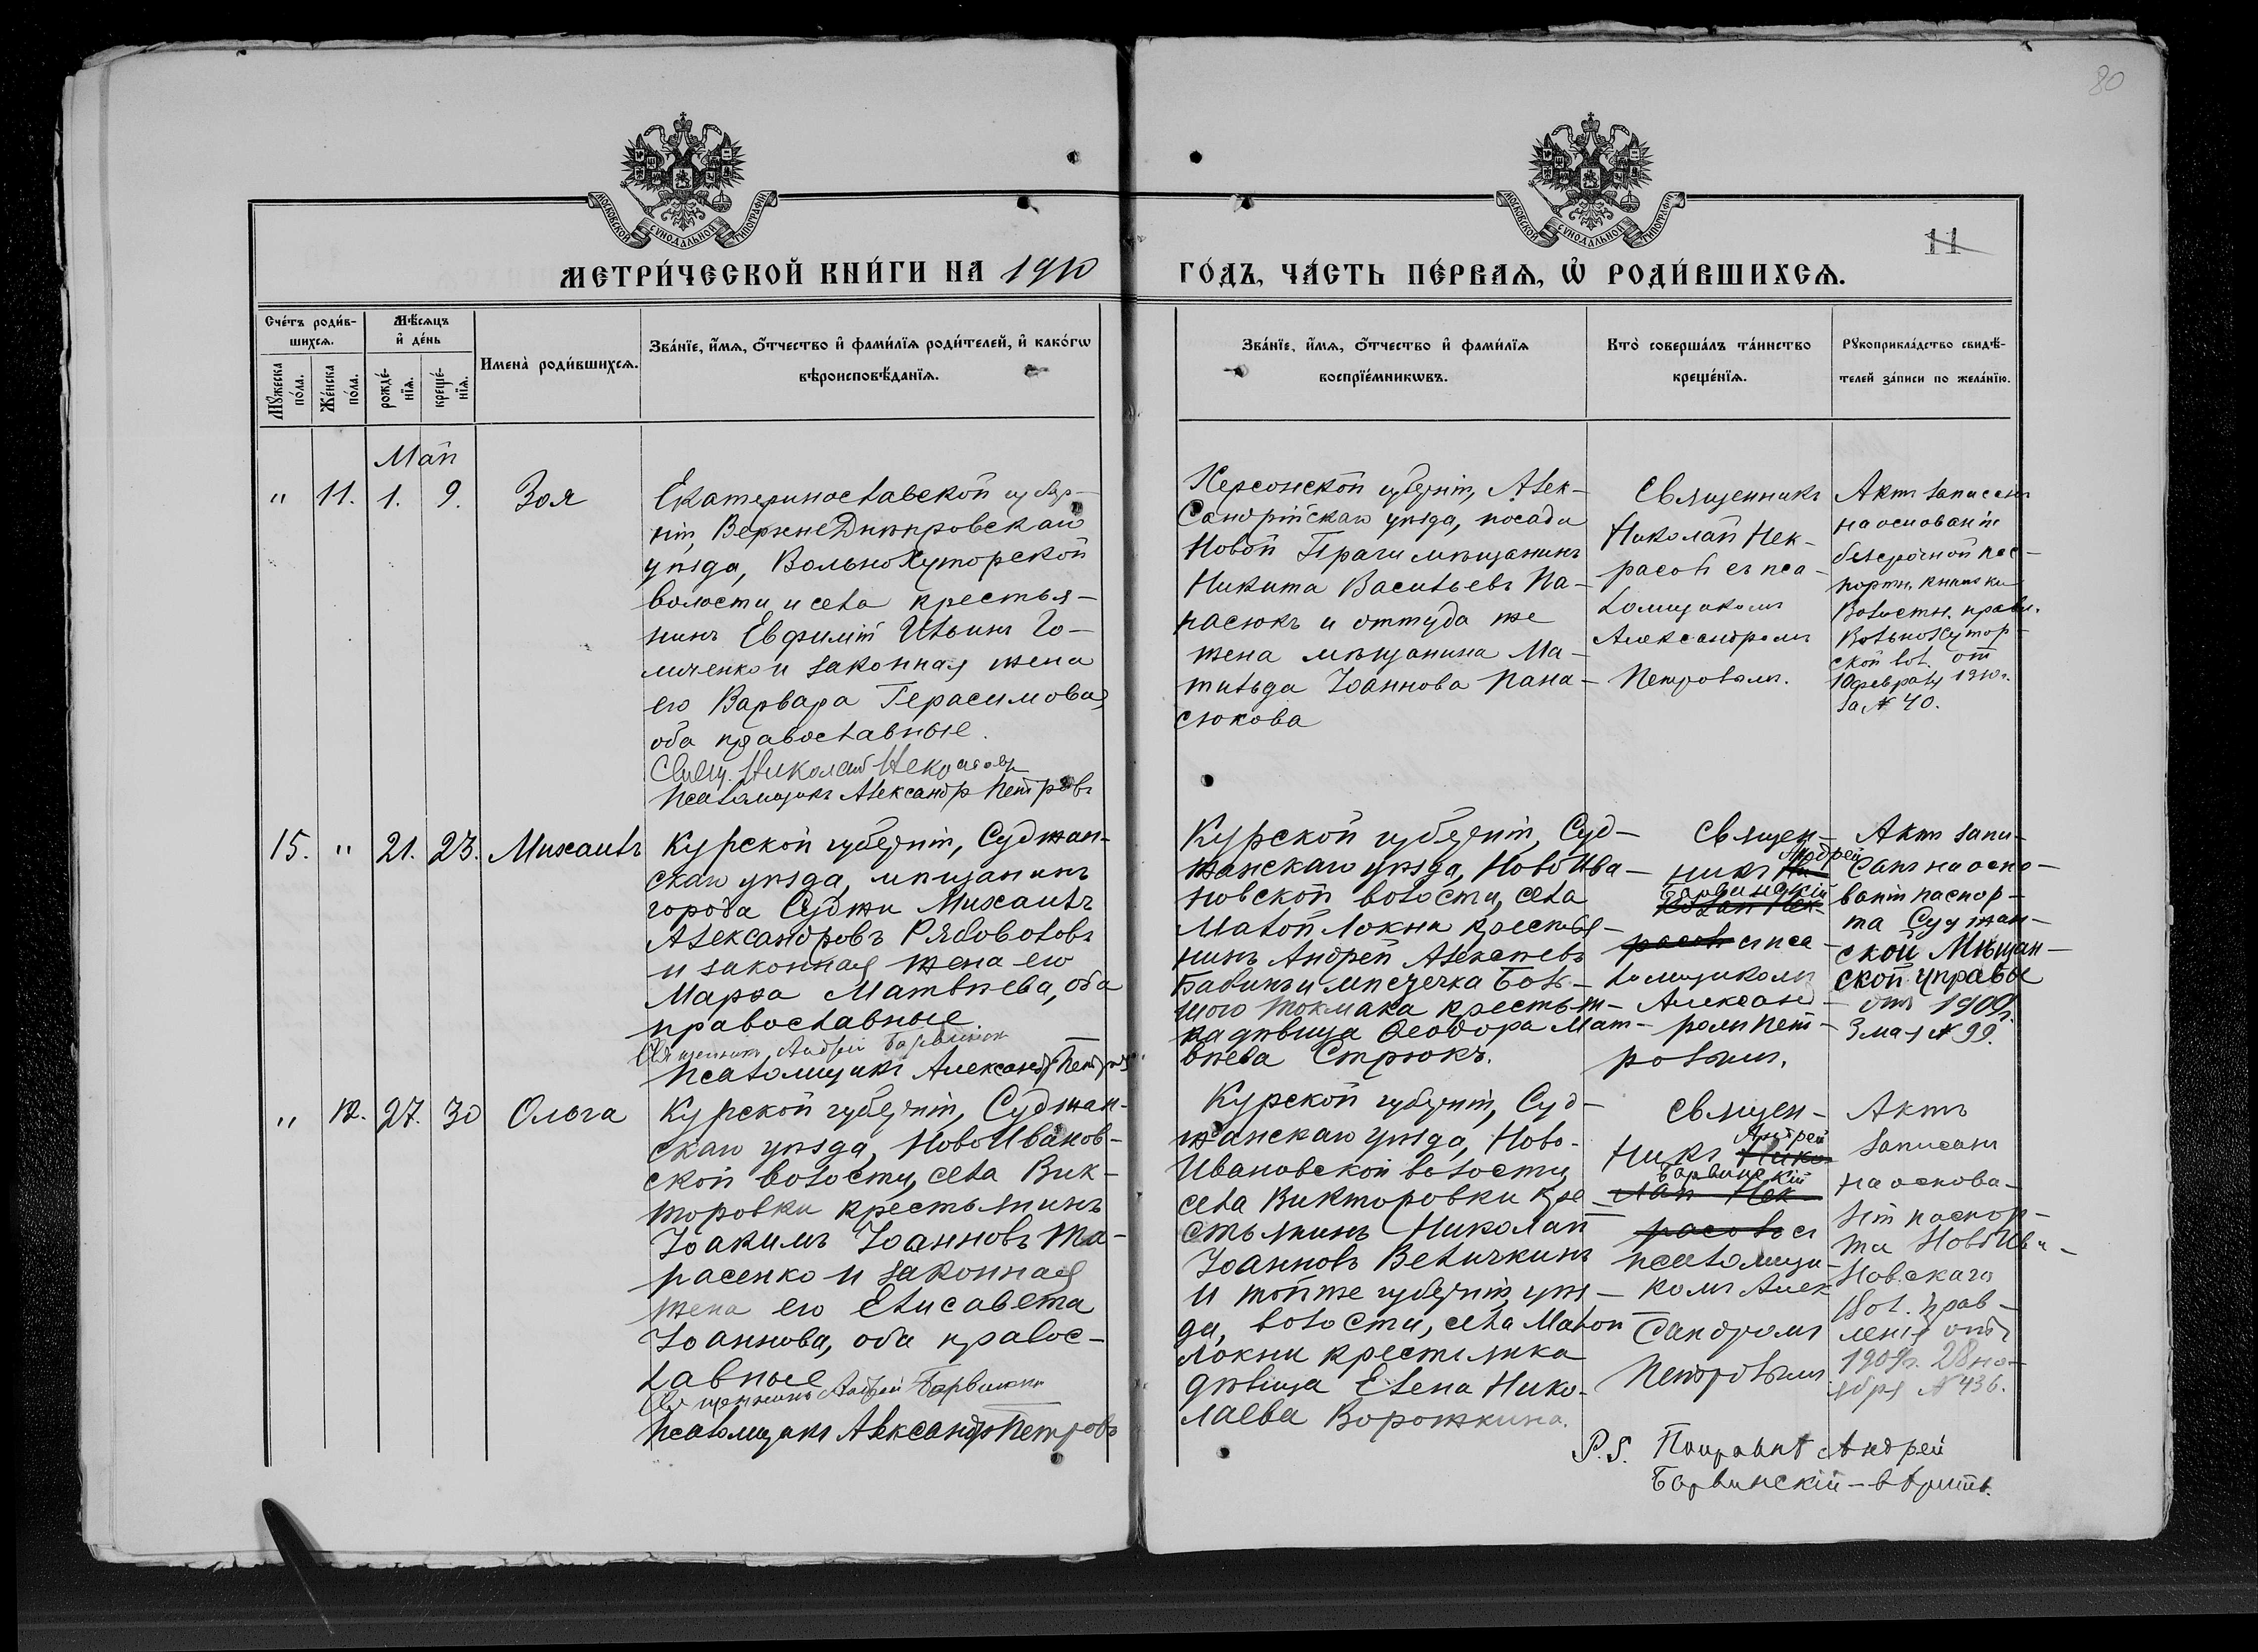 80
МОСКОВСКОЙ СѴНОДАЛЬНОЙ ТИПОГРАФІИ
МОСКОВСКОЙ СѴНОДАЛЬНОЙ ТИПОГРАФІИ
11
МЕТРИ́ЧЕСКОЙ КНИ́ГИ НА 1910
ГО́ДЪ, ЧА́СТЬ ПЕ́РВАѦ, Ѽ РОДИ́ВШИХСѦ.
Сче́тъ роди́в-
шихсѧ.
Мꙋжеска по́ла.
Же́нска по́ла.
Мѣ́сѧцъ
и҆ де́нь
рожде́-
нїѧ.
креще́-
нїѧ.
Имена̀ роди́вшихсѧ.
Зва́нїе, и҆́мѧ, ѻ҆́тчество и҆ фами́лїѧ роди́телей, и҆ како́гѡ
вѣроисповѣ́данїѧ.
Зва́нїе, и҆́мѧ, ѻ҆́тчество и҆ фами́лїѧ
воспрїе́мникѡвъ.
Кто̀ соверша́лъ та́инство
креще́нїѧ.
Рꙋкоприкла́дство свидѣ́-
телей за́писи по жела́нїю.
Май
" 11. 1. 9. Зоя
Екатеринославской губер-
ніи, ВерхнеДнѣпровскаго
уѣзда, ВольноХуторской
волости и села крестья-
нинъ Евфимій Ильинъ Го-
мченко и законная жена
его Варвара Герасимова,
оба православные.
Свящ. Николай Некрасовъ
Псаломщикъ Александр Петровъ
Херсонской губерніи, Алек-
сандрійскаго уѣзда, посада
Новой Праги мѣщанинъ
Никита Васильевъ Па-
насюкъ и оттуда же
жена мѣщанина Ма-
тильда Іоаннова Пана-
сюкова
Священникъ
Николай Нек-
расовъ съ пса-
ломщикомъ
Александромъ
Петровымъ.
Актъ записанъ
на основаніи
безсрочной пас-
портн. книжки
Волостн. правл.
ВольноХутор-
ской вол. от
10 февраля 1910 г.
за № 40.
15. " 21. 23. Михаилъ
Курской губерніи, Суджан-
скаго уѣзда, мѣщанинъ
города Суджи Михаилъ
Александровъ Рябоволовъ
и законная жена его
Марѳа Матвѣева, оба
православные
Священникъ Андрей Барвинскій
Псаломщикъ Александр Петровъ
Курской губерніи, Суд-
жанскаго уѣзда, НовоИва-
новской волости, села
Малой Локни крестья-
нинъ Андрей Алексѣевъ
Бабинъ и мѣстечка Боль-
шого Токмака крестьян-
ка дѣвица Ѳеодора Мат-
вѣева Стрюкъ.
Священ-
Андрей
никъ Ни-
Барвинскій
колай Нек-
расовъ съ пса-
ломщикомъ
Александ-
ромъ Пет-
ровымъ.
Актъ запи-
санъ на осно-
ваніи паспор-
та Суджан-
ской Мѣщан-
ской управы
отъ 1909 г.
3 мая № 99.
" 12. 27. 30 Ольга
Курской губерніи, Суджан-
скаго уѣзда, НовоИванов-
ской волости, села Вик-
торовки крестьянинъ
Іоакимъ Іоанновъ Та-
расенко и законная
жена его Елисавета
Іоаннова, оба правос-
лавные
Священникъ Андрей Барвинскій
Псаломщикъ Александр Петровъ
Курской губерніи, Суд-
жанскаго уѣзда, Ново-
Ивановской волости,
села Викторовки кре-
стьянинъ Николай
Іоанновъ Величкинъ
и той же губерніи, уѣз-
да, волости, села Малой
Локни крестьянка
дѣвица Елена Нико-
лаева Ворожкина.
Священ-
Андрей
никъ Нико-
Барвинскій
лай Нек-
расовъ съ
псаломщи-
комъ Алек
сандромъ
Петровымъ
Актъ
записанъ
на основа-
ніи паспор-
та НовоИва-
новскаго
Вол. Прав-
ленія отъ
1909 г. 28 но-
ября № 436.
P.S. Андрей
Барвинскій